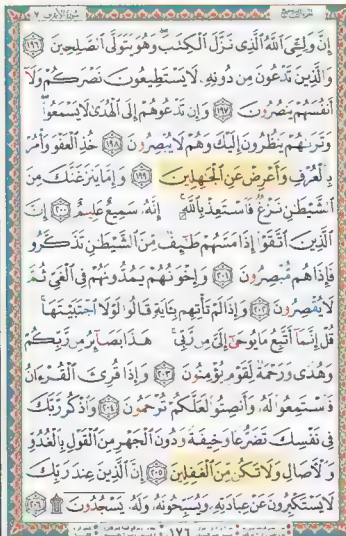 الجزء التاسع سورة الأعراف ٧
إِنَّ وَلِـِّۧيَ ٱللَّهُ ٱلَّذِي نَزَّلَ ٱلْكِتَٰبَ وَهُوَ يَتَوَلَّى ٱلصَّٰلِحِينَ ١٩٦
وَٱلَّذِينَ تَدْعُونَ مِن دُونِهِۦ لَا يَسْتَطِيعُونَ نَصْرَكُمْ وَلَآ
أَنفُسَهُمْ يَنصُرُونَ ١٩٧ وَإِن تَدْعُوهُمْ إِلَى ٱلْهُدَىٰ لَا يَسْمَعُوا۟
وَتَرَىٰهُمْ يَنظُرُونَ إِلَيْكَ وَهُمْ لَا يُبْصِرُونَ ١٩٨ خُذِ ٱلْعَفْوَ وَأْمُرْ
بِٱلْعُرْفِ وَأَعْرِضْ عَنِ ٱلْجَٰهِلِينَ ١٩٩ وَإِمَّا يَنزَغَنَّكَ مِنَ
ٱلشَّيْطَٰنِ نَزْغٌ فَٱسْتَعِذْ بِٱللَّهِ إِنَّهُۥ سَمِيعٌ عَلِيمٌ ٢٠٠ إِنَّ
ٱلَّذِينَ ٱتَّقَوْا۟ إِذَا مَسَّهُمْ طَٰٓئِفٌ مِّنَ ٱلشَّيْطَٰنِ تَذَكَّرُوا۟
فَإِذَا هُم مُّبْصِرُونَ ٢٠١ وَإِخْوَٰنُهُمْ يَمُدُّونَهُمْ فِي ٱلْغَيِّ ثُمَّ
لَا يُقْصِرُونَ ٢٠٢ وَإِذَا لَمْ تَأْتِهِم بِـَٔايَةٍ قَالُوا۟ لَوْلَا ٱجْتَبَيْتَهَا
قُلْ إِنَّمَآ أَتَّبِعُ مَا يُوحَىٰٓ إِلَيَّ مِن رَّبِّي هَٰذَا بَصَآئِرُ مِن رَّبِّكُمْ
وَهُدًى وَرَحْمَةٌ لِّقَوْمٍ يُؤْمِنُونَ ٢٠٣ وَإِذَا قُرِئَ ٱلْقُرْءَانُ
فَٱسْتَمِعُوا۟ لَهُۥ وَأَنصِتُوا۟ لَعَلَّكُمْ تُرْحَمُونَ ٢٠٤ وَٱذْكُر رَّبَّكَ
فِي نَفْسِكَ تَضَرُّعًا وَخِيفَةً وَدُونَ ٱلْجَهْرِ مِنَ ٱلْقَوْلِ بِٱلْغُدُوِّ
وَٱلْءَاصَالِ وَلَا تَكُن مِّنَ ٱلْغَٰفِلِينَ ٢٠٥ إِنَّ ٱلَّذِينَ عِندَ رَبِّكَ
لَا يَسْتَكْبِرُونَ عَنْ عِبَادَتِهِۦ وَيُسَبِّحُونَهُۥ وَلَهُۥ يَسْجُدُونَ ۩ ٢٠٦
١٧٦